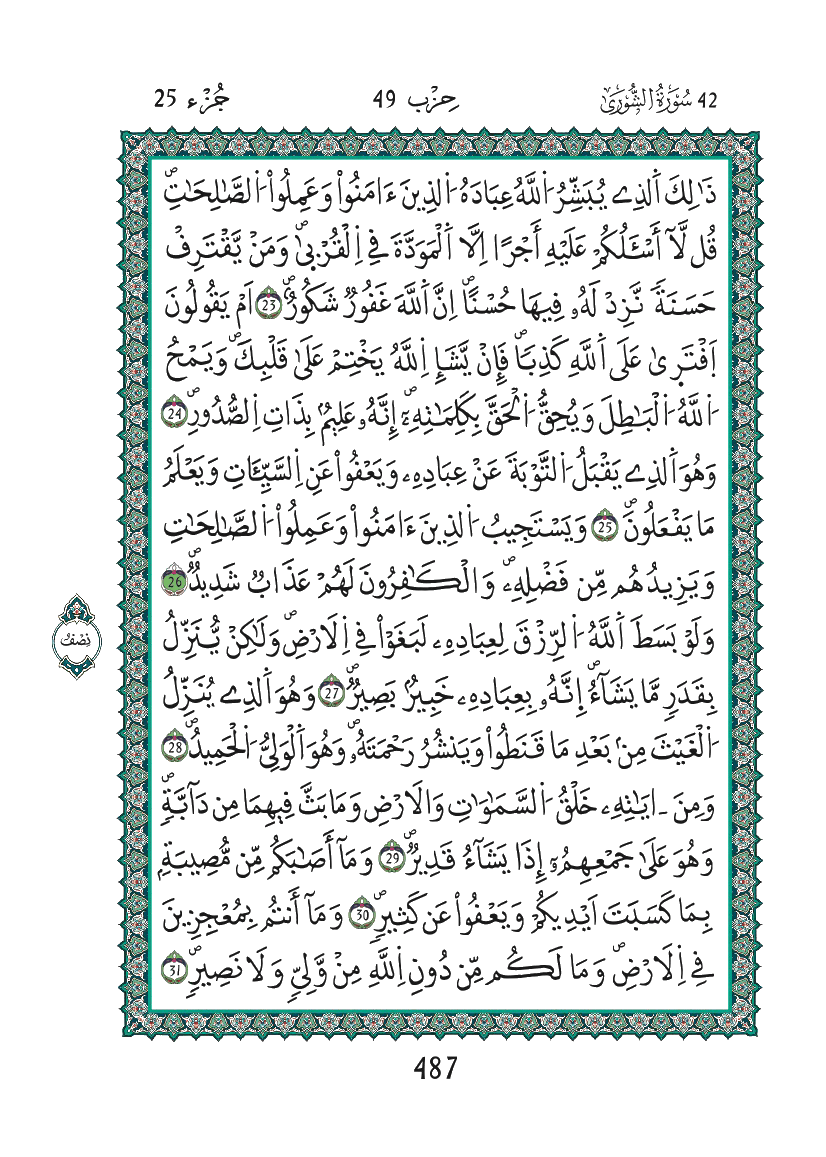 42 سُورَةُ الشُّورَىٰ
حِزْب 49
جُزْء 25
ذَٰلِكَ اَلَّذِے يُبَشِّرُ اُللَّهُ عِبَادَهُ اُلذِينَ ءَامَنُواْ وَعَمِلُواْ اُلصَّٰلِحَٰتِۖ
قُل لَّآ أَسْـَٔلُكُمْ عَلَيْهِ أَجْرًا اِلَّا اَلْمَوَدَّةَ فِے اِلْقُرْبىٰۖ وَمَنْ يَّقْتَرِفْ
حَسَنَةً نَّزِدْ لَهُۥ فِيهَا حُسْناًۖ اِنَّ اَللَّهَ غَفُورٞ شَكُورٌۖ 23 اَمْ يَقُولُونَ
اَفْتَرىٰ عَلَى اَللَّهِ كَذِباٗۖ فَإِنْ يَّشَإِ اِللَّهُ يَخْتِمْ عَلَىٰ قَلْبِكَۖ وَيَمْحُ
اُللَّهُ اُلْبَٰطِلَ وَيُحِقُّ اُلْحَقَّ بِكَلِمَٰتِهِۦٓۖ إِنَّهُۥ عَلِيمُۢ بِذَاتِ اِلصُّدُورِۖ 24
وَهُوَ اَلذِے يَقْبَلُ اُلتَّوْبَةَ عَنْ عِبَادِهِۦ وَيَعْفُواْ عَنِ اِلسَّيِّـَٔاتِ وَيَعْلَمُ
مَا يَفْعَلُونَۖ 25 وَيَسْتَجِيبُ اُلذِينَ ءَامَنُواْ وَعَمِلُواْ اُلصَّٰلِحَٰتِ
وَيَزِيدُهُم مِّن فَضْلِهِۦۖ وَالْكَٰفِرُونَ لَهُمْ عَذَابٞ شَدِيدٞۖ 26
نِصْفُ
وَلَوْ بَسَطَ اَللَّهُ اُلرِّزْقَ لِعِبَادِهِۦ لَبَغَوْاْ فِے اِلَارْضِۖ وَلَٰكِنْ يُّنَزِّلُ
بِقَدَرٖ مَّا يَشَآءُۖ اِنَّهُۥ بِعِبَادِهِۦ خَبِيرُۢ بَصِيرٞۖ 27 وَهُوَ اَلذِے يُنَزِّلُ
اُلْغَيْثَ مِنۢ بَعْدِ مَا قَنَطُواْ وَيَنشُرُ رَحْمَتَهُۥۖ وَهُوَ اَلْوَلِيُّ اُلْحَمِيدُۖ 28
وَمِنَ ـ ايَٰتِهِۦ خَلْقُ اُلسَّمَٰوَٰتِ وَالَارْضِ وَمَا بَثَّ فِيهِمَا مِن دَآبَّةٖۖ
وَهُوَ عَلَىٰ جَمْعِهِمُۥٓ إِذَا يَشَآءُ قَدِيرٞۖ 29 وَمَآ أَصَٰبَكُم مِّن مُّصِيبَةِۢ
بِمَا كَسَبَتَ اَيْدِيكُمْ وَيَعْفُواْ عَن كَثِيرٖۖ 30 وَمَآ أَنتُم بِمُعْجِزِينَ
فِے اِلَارْضِۖ وَمَا لَكُم مِّن دُونِ اِللَّهِ مِنْ وَّلِيّٖ وَلَا نَصِيرٖۖ 31
487